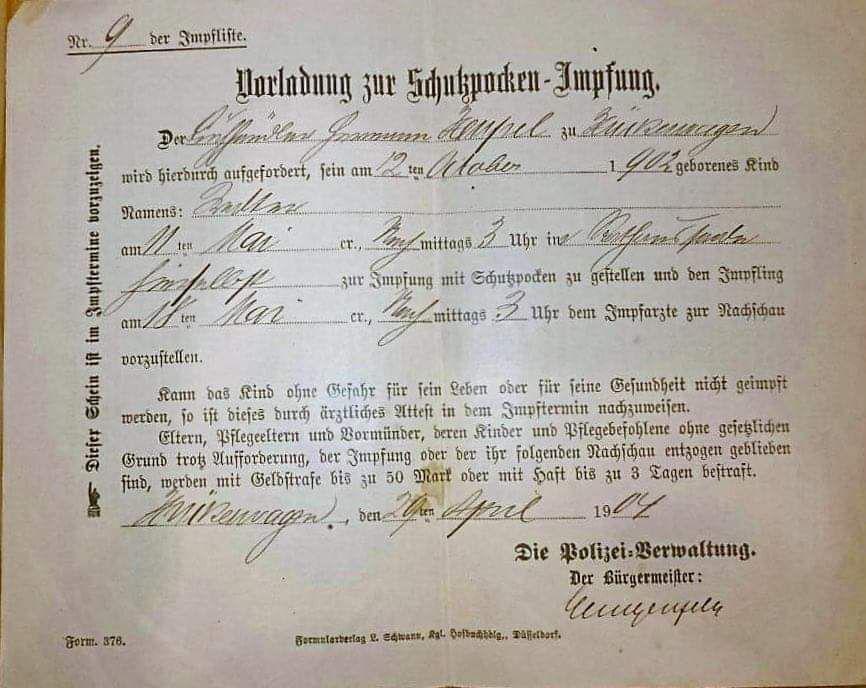 Nr. 9 der Impfliste.
Vorladung zur Schutzpocken-Impfung.
Der Hermann Hempel zu Hückeswagen
wird hierdurch aufgefordert, sein am 12ten October 1902 geborenes Kind
Namens:
am 11ten Mai cr., Nachmittags 3 Uhr in
hierselbst zur Impfung mit Schutzpocken zu gestellen und den Impfling
am 18ten Mai cr., Nachmittags 3 Uhr dem Impfarzte zur Nachschau
vorzustellen.
Kann das Kind ohne Gefahr für sein Leben oder für seine Gesundheit nicht geimpft
werden, so ist dieses durch ärztliches Attest in dem Impftermin nachzuweisen.
Eltern, Pflegeeltern und Vormünder, deren Kinder und Pflegebefohlene ohne gesetzlichen
Grund trotz Aufforderung, der Impfung oder der ihr folgenden Nachschau entzogen geblieben
sind, werden mit Geldstrafe bis zu 50 Mark oder mit Haft bis zu 3 Tagen bestraft.
Hückeswagen, den 29ten April 1904
Die Polizei-Verwaltung.
Der Bürgermeister:
Form. 376.
Formularverlag L. Schwann, Kgl. Hofbuchhdlg., Düsseldorf.
Dieser Schein ist im Impftermine vorzuzeigen.